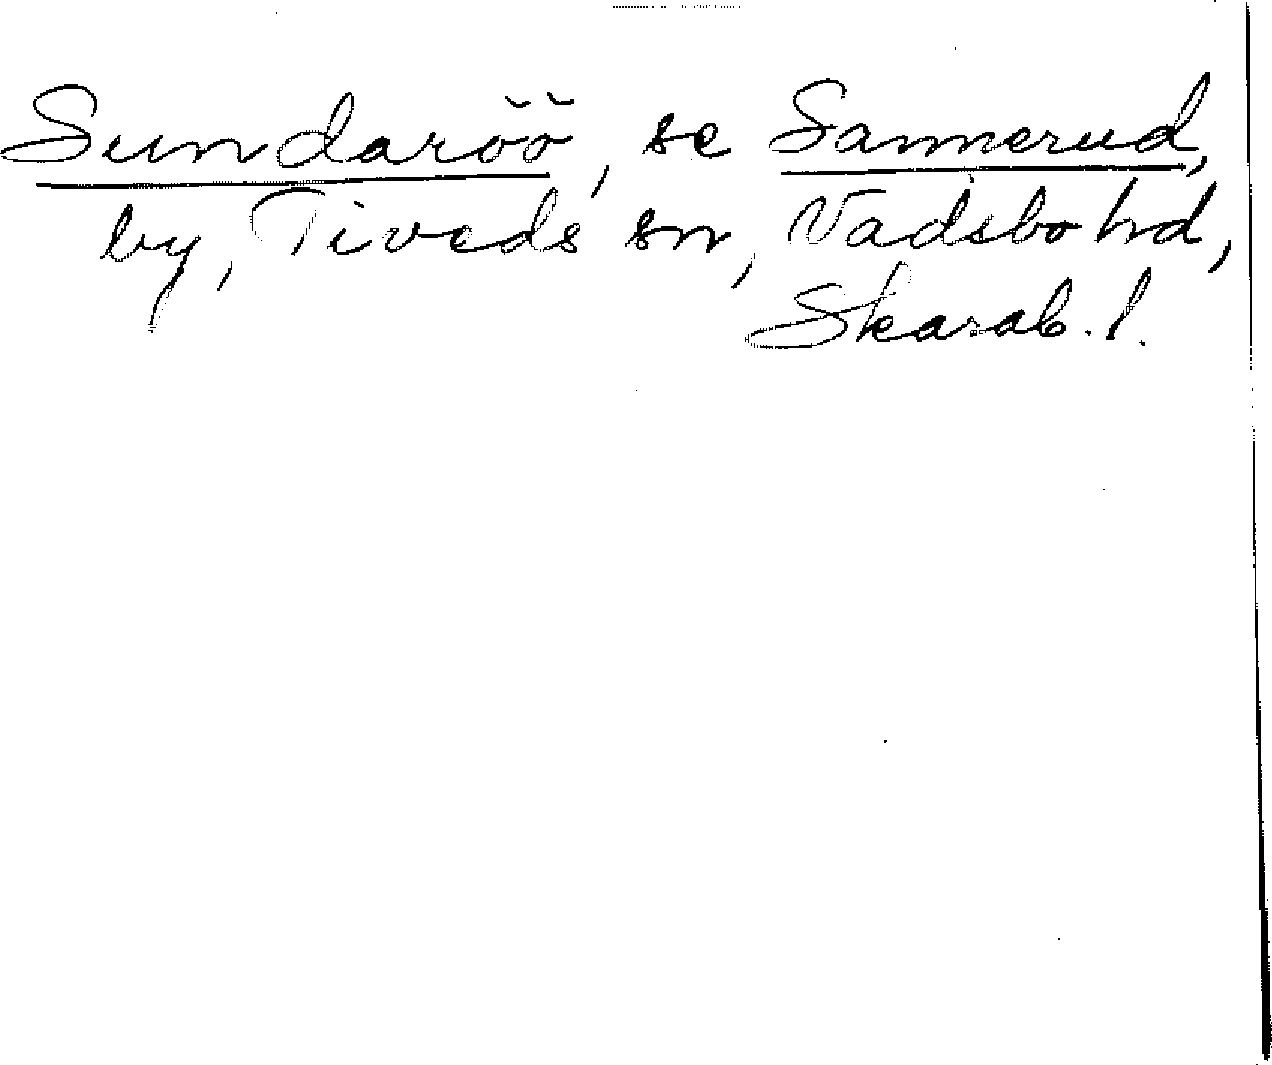 Sundaröö, se Sannerud,
by, Tiveds sn, Vadsbo hd,
Skarab. l.